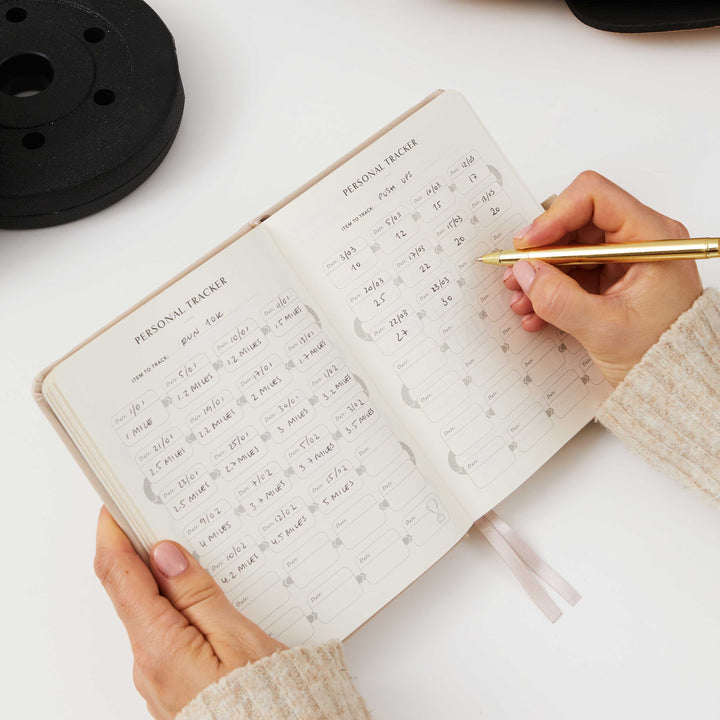 PERSONAL TRACKER
ITEM TO TRACK: RUN 10K
Date: 1/01 Date: 5/01 Date: 10/01 Date: 11/01
1 MILE 1.2 MILES 1.2 MILES 1.5 MILES
Date: 21/01 Date: 19/01 Date: 17/01 Date: 13/01
2.5 MILES 2.2 MILES 2 MILES 1.7 MILES
Date: 23/01 Date: 25/01 Date: 30/01 Date: 1/02
2.5 MILES 2.7 MILES 3 MILES 3.2 MILES
Date: 9/02 Date: 7/02 Date: 5/02 Date: 3/02
4 MILES 3.7 MILES 3.7 MILES 3.5 MILES
Date: 10/02 Date: 12/02 Date: 15/02 Date:
4.2 MILES 4.5 MILES 5 MILES
Date: Date: Date: Date:
Date: Date: Date:
PERSONAL TRACKER
ITEM TO TRACK: PUSH UPS
Date: 3/03 Date: 5/03 Date: 10/03 Date: 12/03
10 12 15 17
Date: 20/03 Date: 17/03 Date: 15/03 Date: 13/03
25 22 20 20
Date: 22/03 Date: 23/03 Date: Date:
27 30
Date: Date: Date: Date:
Date: Date: Date: Date:
Date: Date: Date: